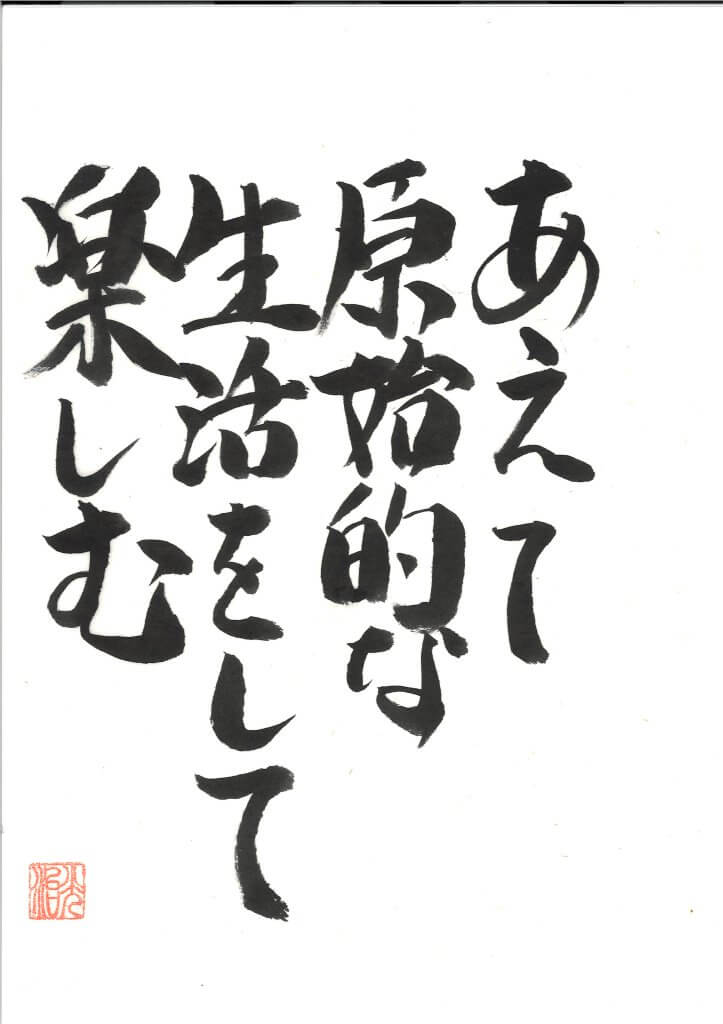 あえて
原始的な
生活をして
楽しむ